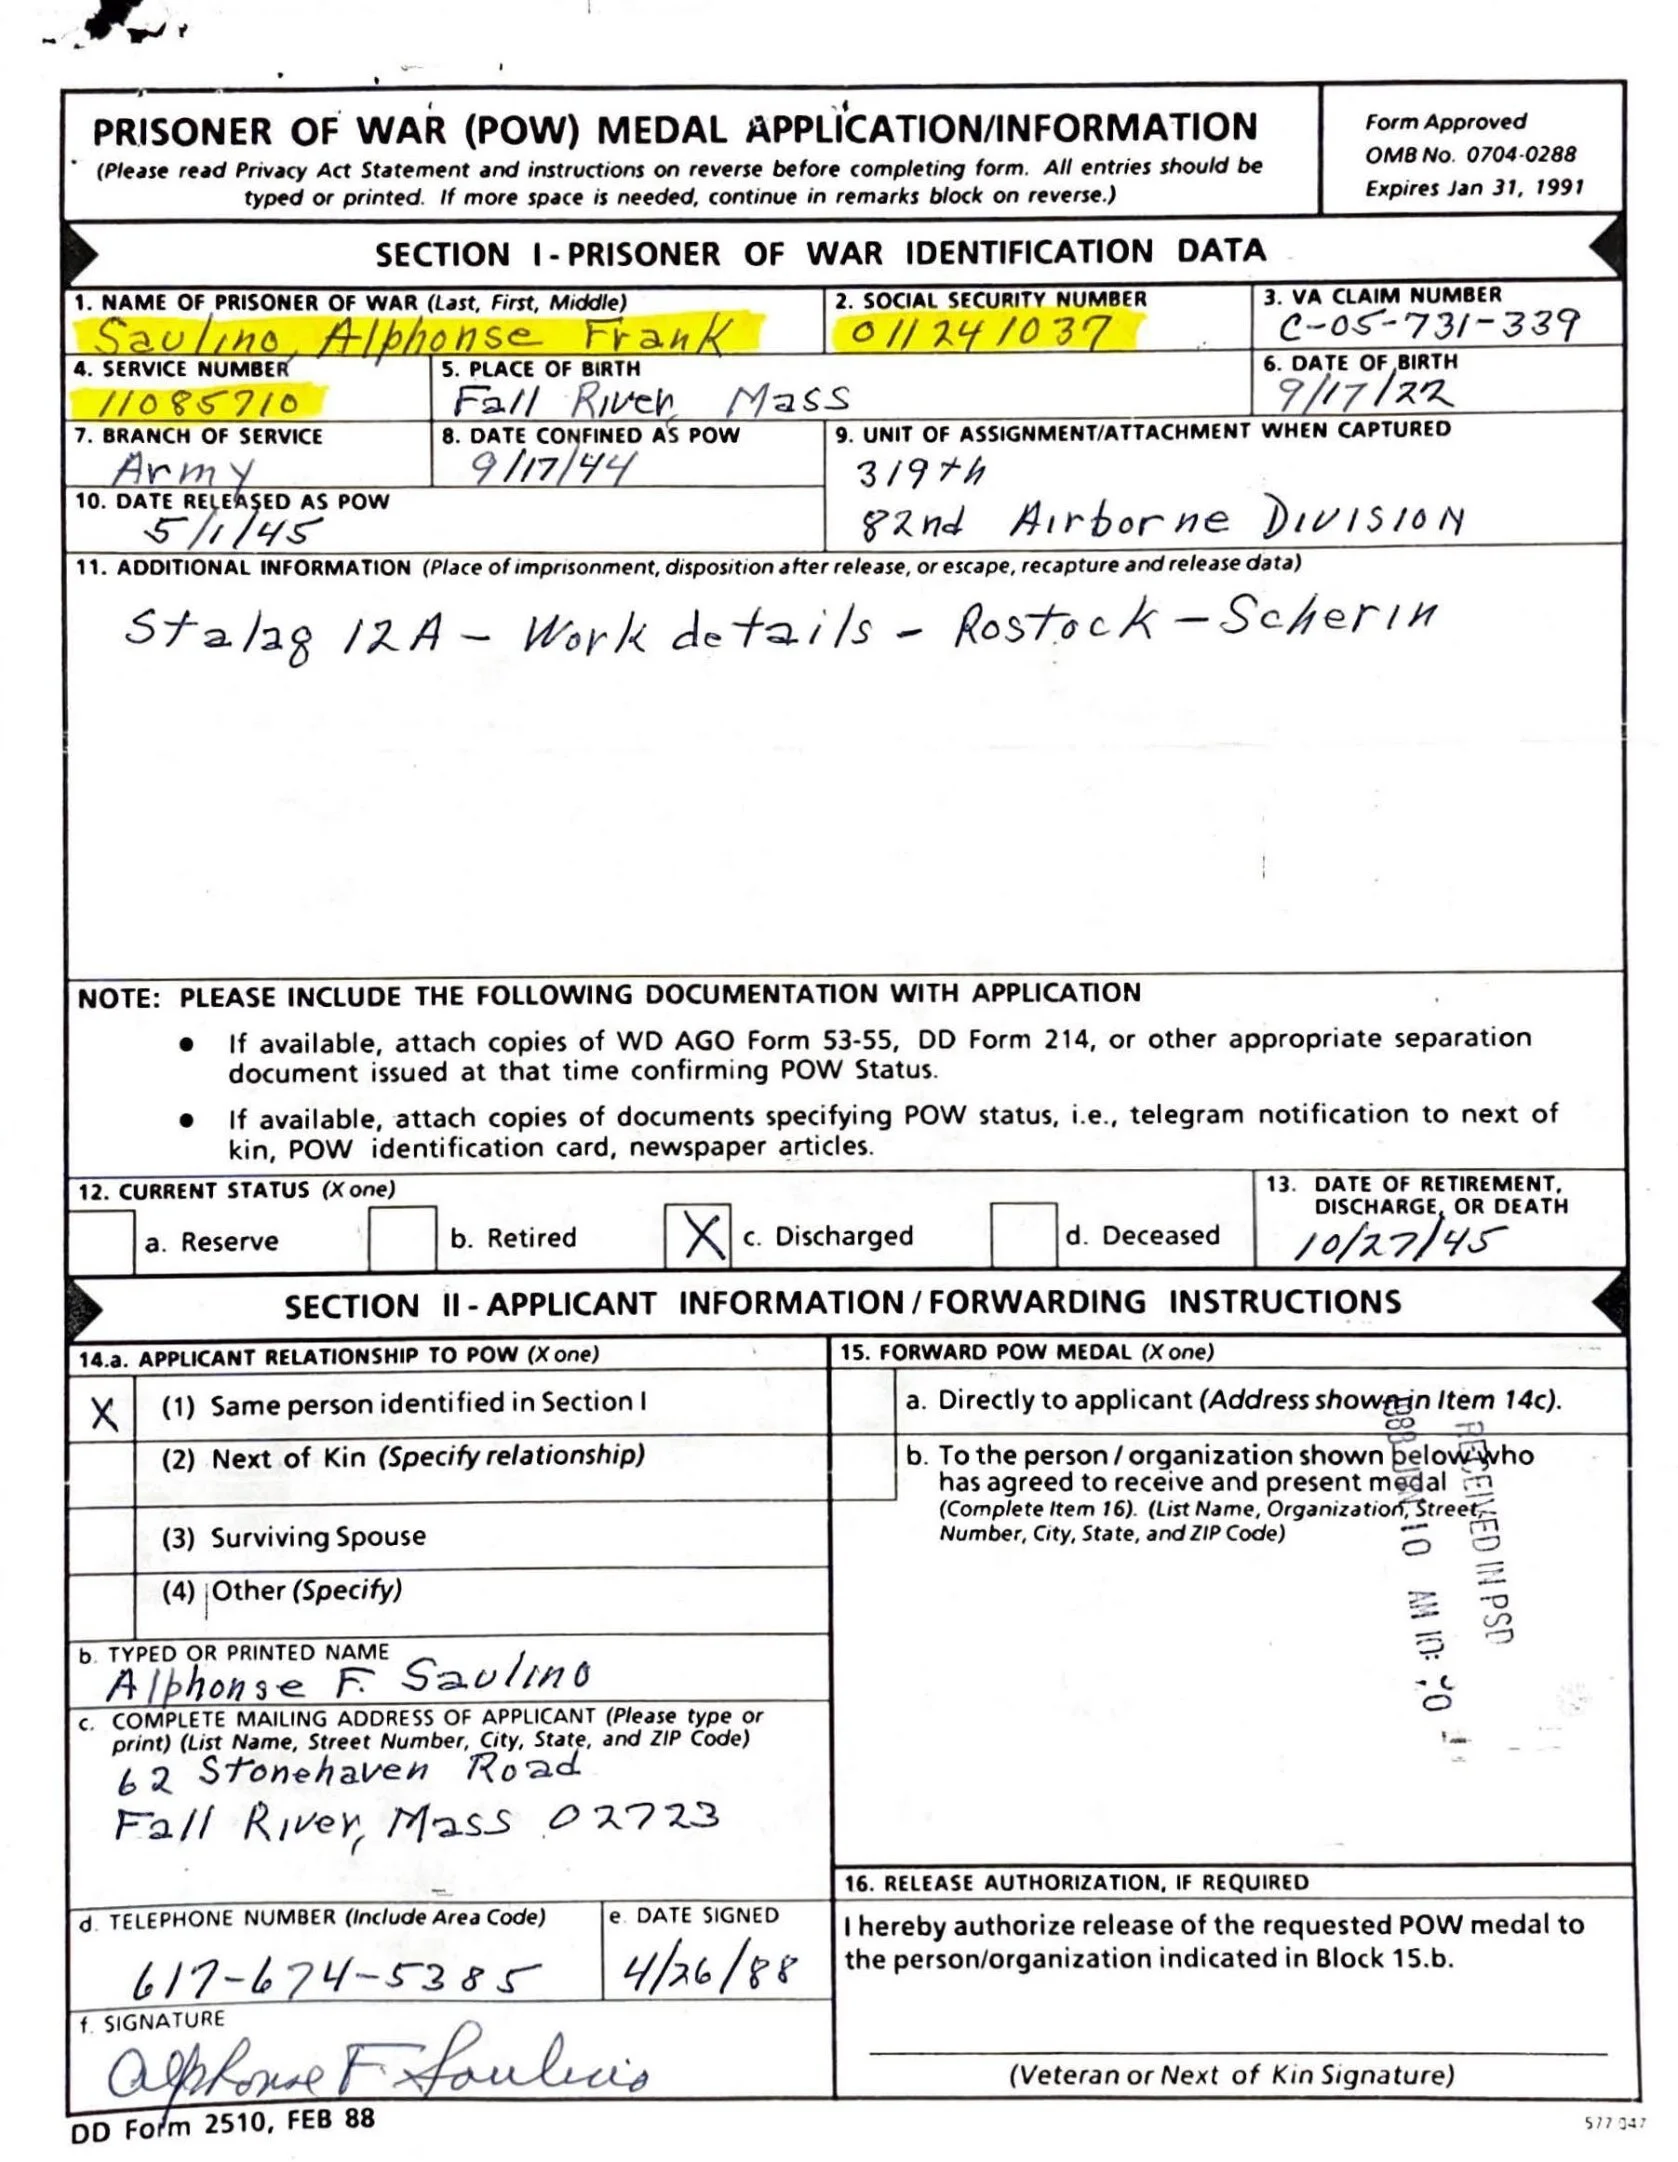 PRISONER OF WAR (POW) MEDAL APPLICATION/INFORMATION
(Please read Privacy Act Statement and instructions on reverse before completing form. All entries should be
typed or printed. If more space is needed, continue in remarks block on reverse.)
Form Approved
OMB No. 0704-0288
Expires Jan 31, 1991
SECTION I - PRISONER OF WAR IDENTIFICATION DATA
1. NAME OF PRISONER OF WAR (Last, First, Middle)
Saulino, Alphonse Frank
2. SOCIAL SECURITY NUMBER
011241037
3. VA CLAIM NUMBER
C-05-731-339
4. SERVICE NUMBER
11085710
5. PLACE OF BIRTH
Fall River, Mass
6. DATE OF BIRTH
9/17/22
7. BRANCH OF SERVICE
Army
8. DATE CONFINED AS POW
9/17/44
9. UNIT OF ASSIGNMENT/ATTACHMENT WHEN CAPTURED
319th
82nd Airborne DIVISION
10. DATE RELEASED AS POW
5/1/45
11. ADDITIONAL INFORMATION (Place of imprisonment, disposition after release, or escape, recapture and release data)
Stalag 12A - Work details - Rostock - Scherin
NOTE: PLEASE INCLUDE THE FOLLOWING DOCUMENTATION WITH APPLICATION
● If available, attach copies of WD AGO Form 53-55, DD Form 214, or other appropriate separation
document issued at that time confirming POW Status.
● If available, attach copies of documents specifying POW status, i.e., telegram notification to next of
kin, POW identification card, newspaper articles.
12. CURRENT STATUS (X one)
a. Reserve
b. Retired
X c. Discharged
d. Deceased
13. DATE OF RETIREMENT,
DISCHARGE, OR DEATH
10/27/45
SECTION II - APPLICANT INFORMATION / FORWARDING INSTRUCTIONS
14.a. APPLICANT RELATIONSHIP TO POW (X one)
X (1) Same person identified in Section I
(2) Next of Kin (Specify relationship)
(3) Surviving Spouse
(4) Other (Specify)
b. TYPED OR PRINTED NAME
Alphonse F. Saulino
c. COMPLETE MAILING ADDRESS OF APPLICANT (Please type or
print) (List Name, Street Number, City, State, and ZIP Code)
62 Stonehaven Road
Fall River, Mass 02723
d. TELEPHONE NUMBER (Include Area Code)
617-674-5385
e. DATE SIGNED
4/26/88
f. SIGNATURE
Alphonse F. Saulino
15. FORWARD POW MEDAL (X one)
a. Directly to applicant (Address shown in Item 14c).
b. To the person / organization shown below who
has agreed to receive and present medal
(Complete Item 16). (List Name, Organization, Street,
Number, City, State, and ZIP Code)
RECEIVED IN PSD
10 AM
16. RELEASE AUTHORIZATION, IF REQUIRED
I hereby authorize release of the requested POW medal to
the person/organization indicated in Block 15.b.
(Veteran or Next of Kin Signature)
DD Form 2510, FEB 88